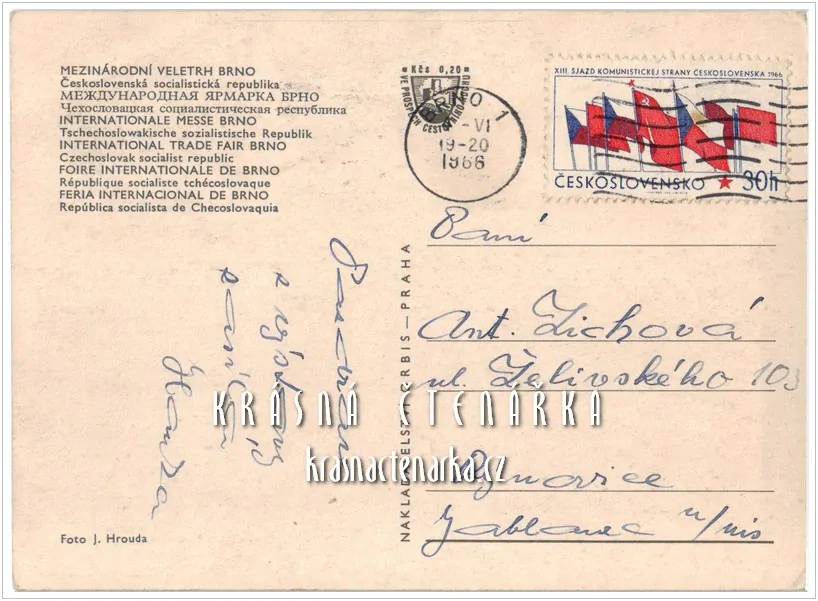 MEZINÁRODNÍ VELETRH BRNO
Československá socialistická republika
МЕЖДУНАРОДНАЯ ЯРМАРКА БРНО
Чехословацкая социалистическая республика
INTERNATIONALE MESSE BRNO
Tschechoslowakische sozialistische Republik
INTERNATIONAL TRADE FAIR BRNO
Czechoslovak socialist republic
FOIRE INTERNATIONALE DE BRNO
République socialiste tchécoslovaque
FERIA INTERNACIONAL DE BRNO
República socialista de Checoslovaquia
Kčs 0,20
BRNO 1
VI
19-20
1966
XIII. SJAZD KOMUNISTICKEJ STRANY ČESKOSLOVENSKA 1966
ČESKOSLOVENSKO 30h
Paní
Ant. Zichová
ul. Želivského 103
Rýnovice
Jablonec n/nis
z výstavy
Foto J. Hrouda
NAKLADATELSTVÍ ORBIS — PRAHA
KRÁSNÁ ČTENÁŘKA
krasnactenarka.cz